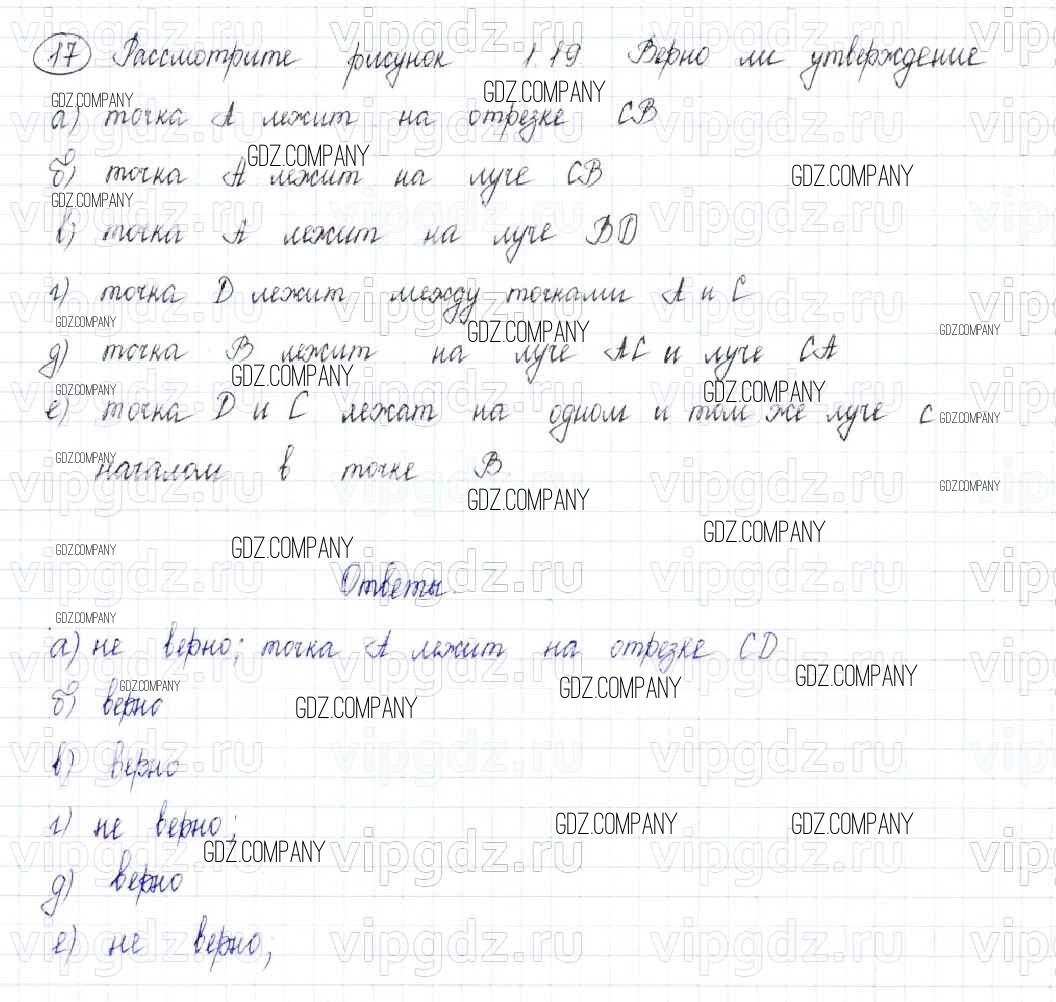 17 Рассмотрите рисунок 1.19 Верно ли утверждение
а) точка А лежит на отрезке СВ
б) точка А лежит на луче СВ
в) точка А лежит на луче BD
г) точка D лежит между точками А и С
д) точка В лежит на луче АС и луче СА
е) точка D и С лежат на одном и том же луче с
началом в точке В
Ответы.
а) не верно; точка А лежит на отрезке CD
б) верно
в) верно
г) не верно;
д) верно
е) не верно;
GDZ.COMPANY
vipgdz.ru